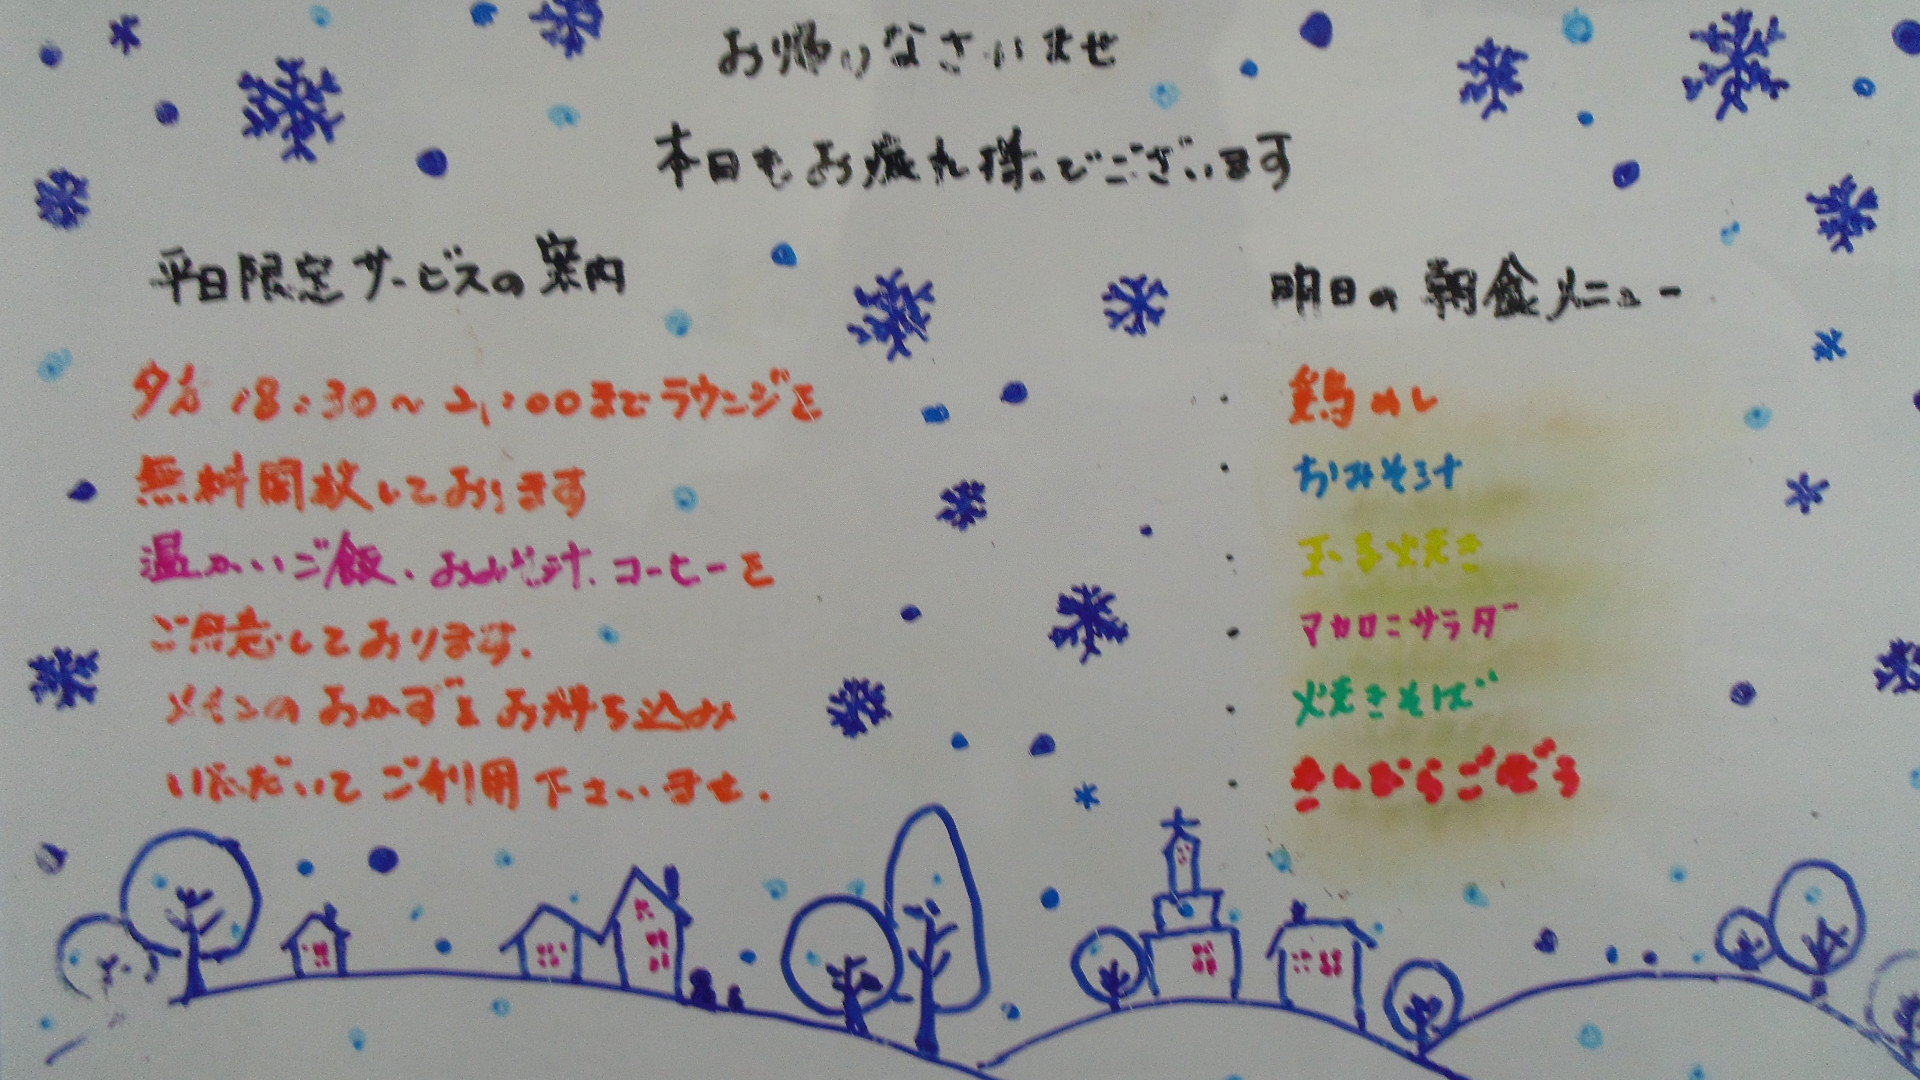 お帰りなさいませ
本日もお疲れ様でございます
平日限定サービスの案内
夕方18:30~21:00までラウンジを
無料開放しております
温かいご飯、おみそ汁、コーヒーを
ご用意しております。
メインのおかずをお持ち込み
いただいてご利用下さいませ。
明日の朝食メニュー
・鶏めし
・おみそ汁
・玉子焼き
・マカロニサラダ
・焼きそば
・きんぴらごぼう